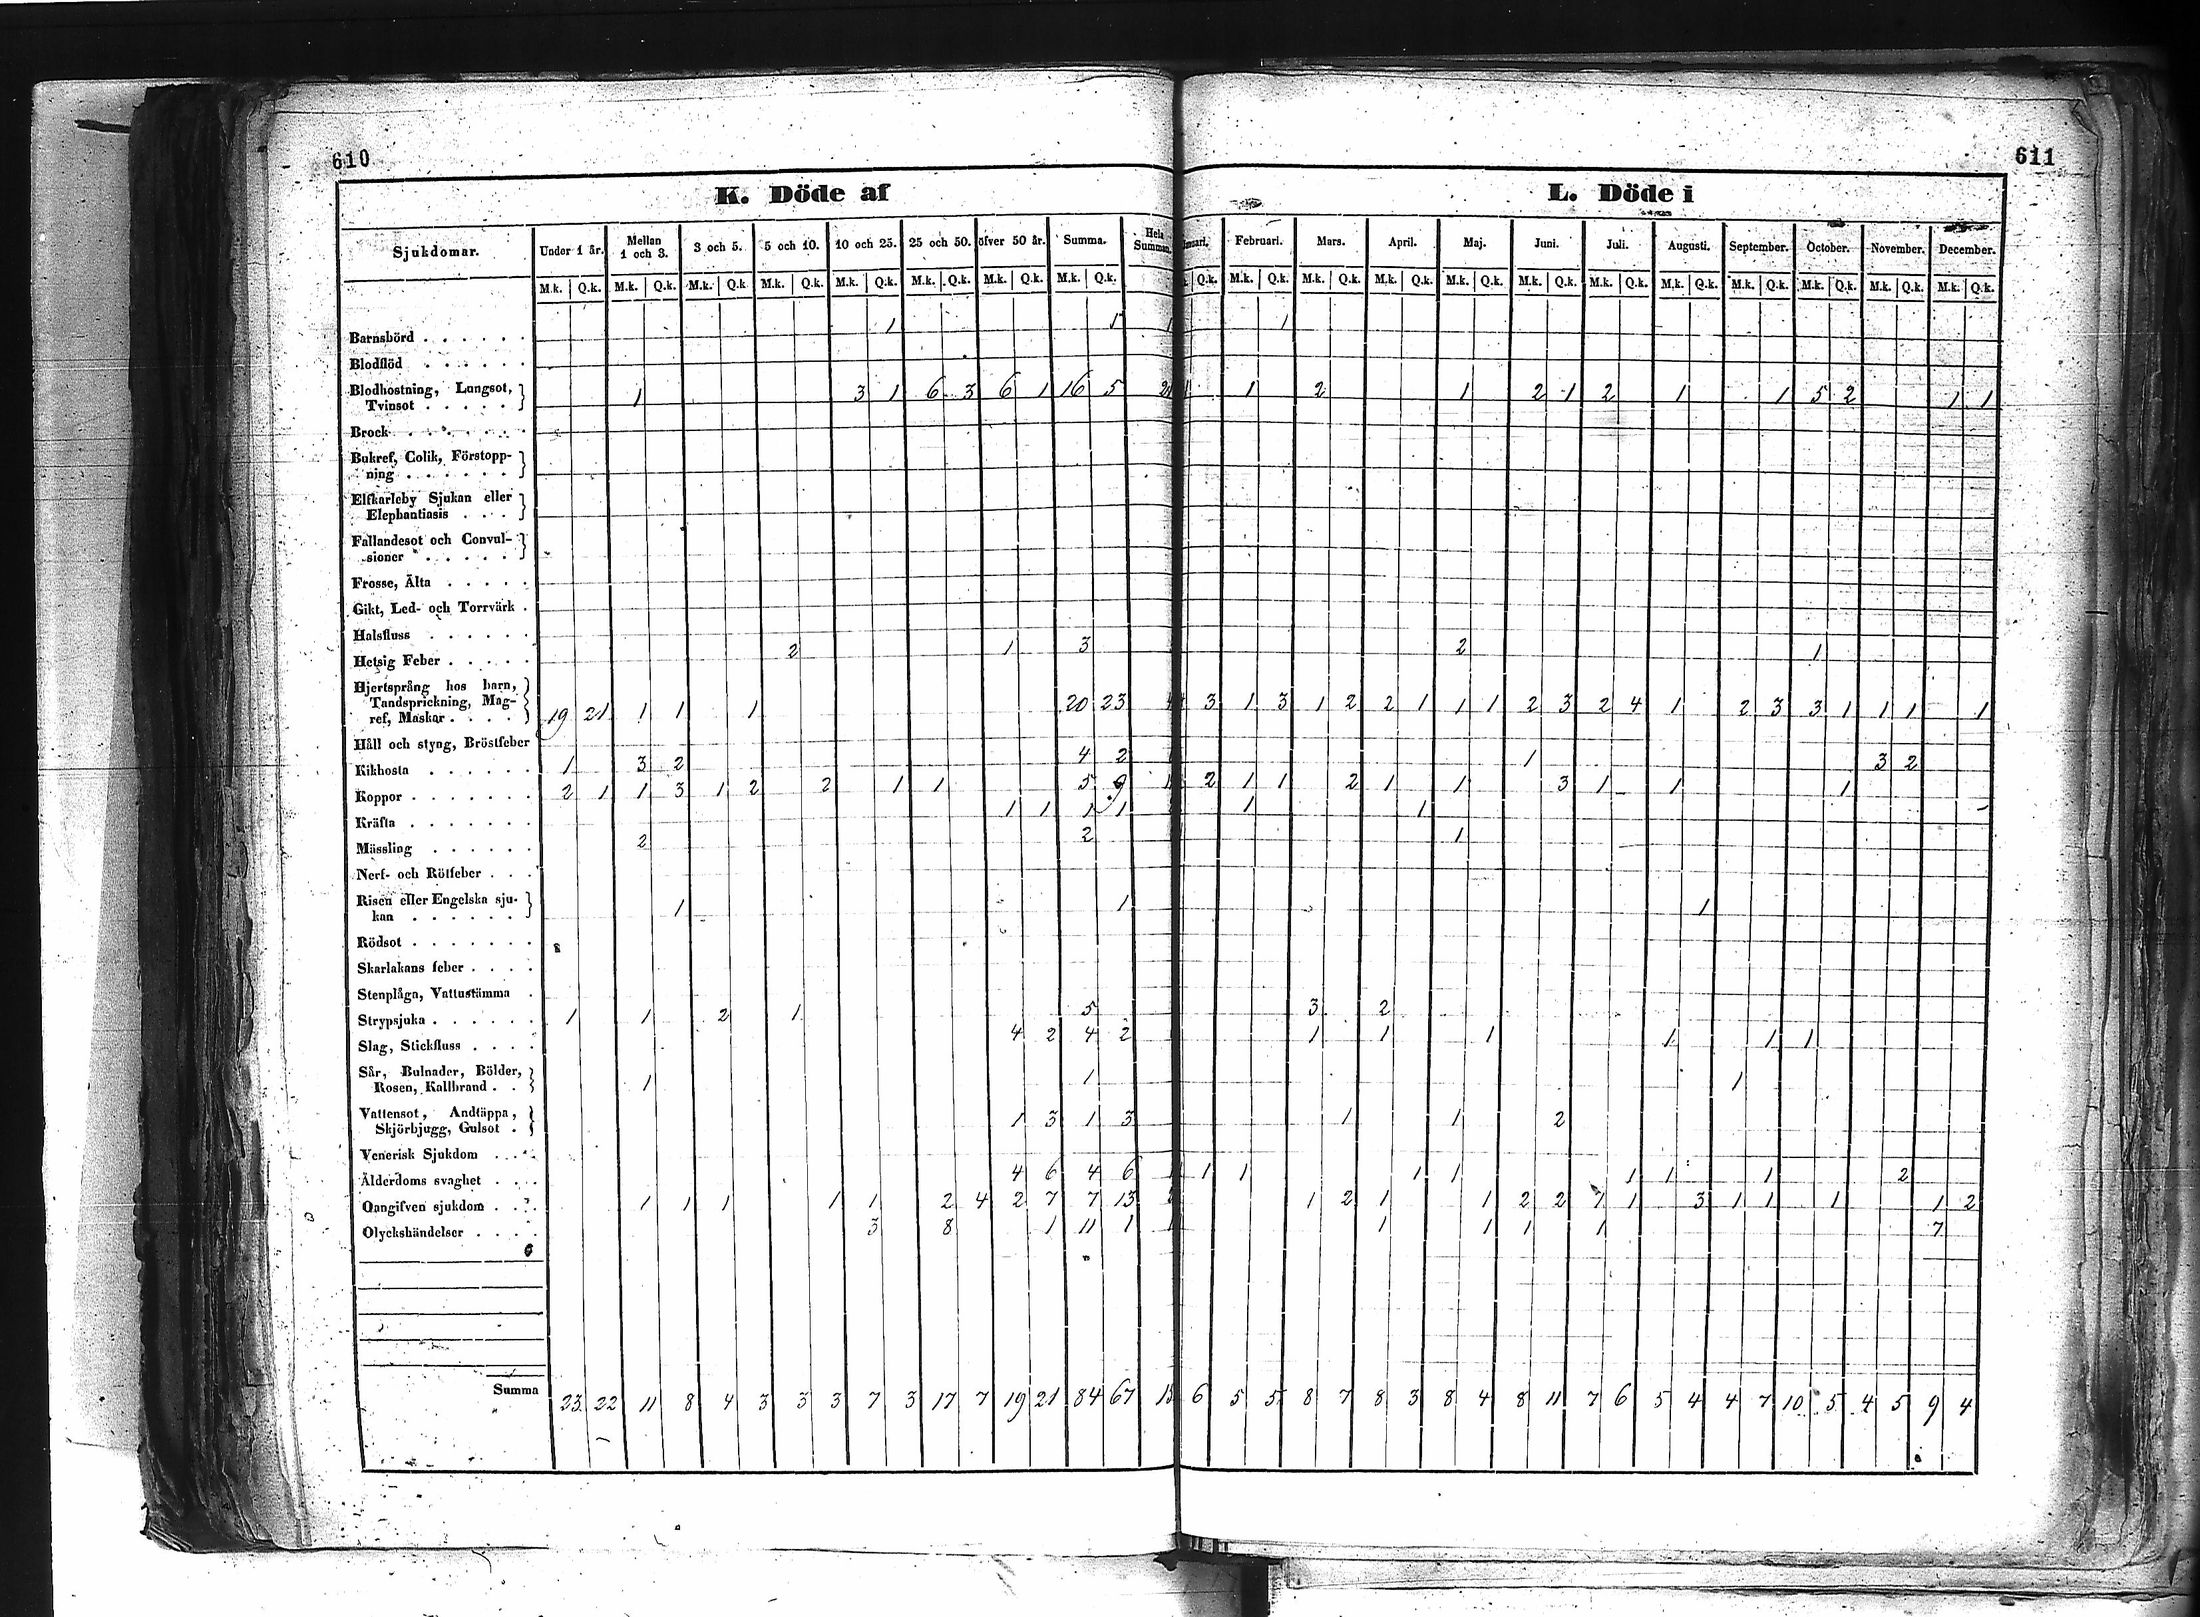 610
611
K. Döde af
L. Döde i
Sjukdomar. Under 1 år. Mellan 1 och 3. 3 och 5. 5 och 10. 10 och 25. 25 och 50. öfver 50 år. Summa. Hela Summan. Februari. Mars. April. Maj. Juni. Juli. Augusti. September. October. November. December.
M.k. Q.k. M.k. Q.k. M.k. Q.k. M.k. Q.k. M.k. Q.k. M.k. Q.k. M.k. Q.k. M.k. Q.k. Q.k. M.k. Q.k. M.k. Q.k. M.k. Q.k. M.k. Q.k. M.k. Q.k. M.k. Q.k. M.k. Q.k. M.k. Q.k. M.k. Q.k. M.k. Q.k. M.k. Q.k.
Barnsbörd . . . . . . 1 1 1 1
Blodflöd . . . . . .
Blodhostning, Lungsot,
Tvinsot . . . . . 1 3 1 6 3 6 1 16 5 21 1 1 2 1 2 1 2 1 1 5 2 1 1
Brock . . . . . . .
Bukref, Colik, Förstopp-
ning . . . . . .
Elfkarleby Sjukan eller
Elephantiasis . . .
Fallandesot och Convul-
sioner . . . . .
Frosse, Älta . . . . .
Gikt, Led- och Torrvärk .
Halsfluss . . . . . .
Hetsig Feber . . . . . 2 1 3 2 1
Hjertsprång hos barn,
Tandsprickning, Mag-
ref, Maskar . . . . 19 21 1 1 1 20 23 4 3 1 3 1 2 2 1 1 1 2 3 2 4 1 2 3 3 1 1 1 1
Håll och styng, Bröstfeber
Kikhosta . . . . . . 1 3 2 4 2 1 3 2
Koppor . . . . . . . 2 1 1 3 1 2 2 1 1 5 9 1 2 1 1 2 1 1 3 1 1 1
Kräfta . . . . . . . 1 1 1 1 1 1
Mässling . . . . . . 2 2 1
Nerf- och Rötfeber . . .
Risen eller Engelska sju-
kan . . . . . . 1 1 1
Rödsot . . . . . . .
Skarlakans feber . . . .
Stenplåga, Vattustämma .
Strypsjuka . . . . . . 1 1 2 1 5 3 2
Slag, Stickfluss . . . . 4 2 4 2 1 1 1 1 1 1
Sår, Bulnader, Bölder,
Rosen, Kallbrand . . 1 1 1
Vattensot, Andtäppa,
Skjörbjugg, Gulsot . 1 3 1 3 1 1 2
Venerisk Sjukdom . . . .
Ålderdoms svaghet . . . 4 6 4 6 1 1 1 1 1 1 1 1 2
Oangifven sjukdom . . . 1 1 1 1 1 2 4 2 7 7 13 2 1 2 1 1 2 2 7 1 3 1 1 1 1 2
Olyckshändelser . . . . 3 8 1 11 1 1 1 1 1 1 7
Summa 23 22 11 8 4 3 3 3 7 3 17 7 19 21 84 67 15 6 5 5 8 7 8 3 8 4 8 11 7 6 5 4 4 7 10 5 4 5 9 4